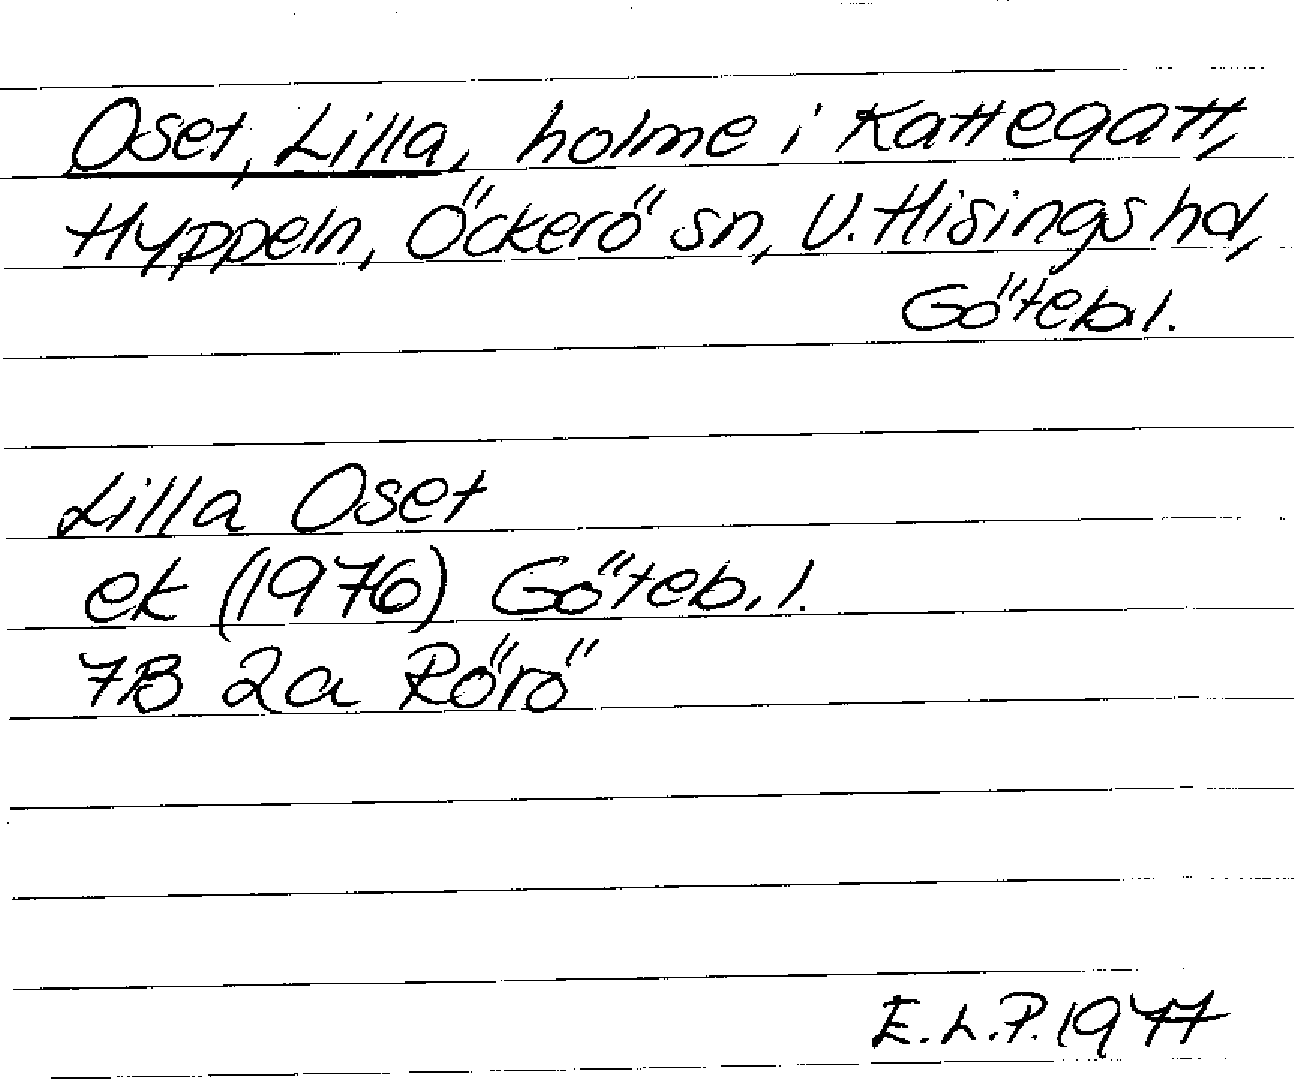 Oset, Lilla, holme i Kattegatt,
Hyppeln, Öckerö sn, V. Hisings hd,
Göteb.l.
Lilla Oset
ek (1976) Göteb.l.
7B 2a Rörö
E.L.P. 1977